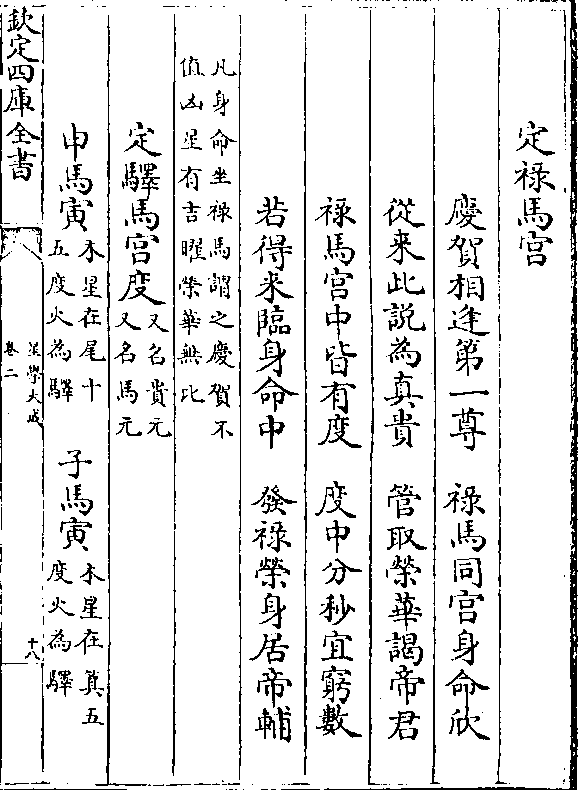 定祿馬宮
慶賀相逢第一尊　祿馬同宮身命欣
從來此説為真貴　管取榮華謁帝君
祿馬宮中皆有度　度中分秒宜窮數
若得来臨身命中　發祿榮身居帝輔
凡身命坐祿馬謂之慶賀不
值凶星有吉曜榮華無比
定驛馬宮度
又名貴元
又名馬元
申馬寅
木星在尾十
五度火為驛
子馬寅
木星在箕五
度火為驛
欽定四庫全書
星學大成
卷二
十八